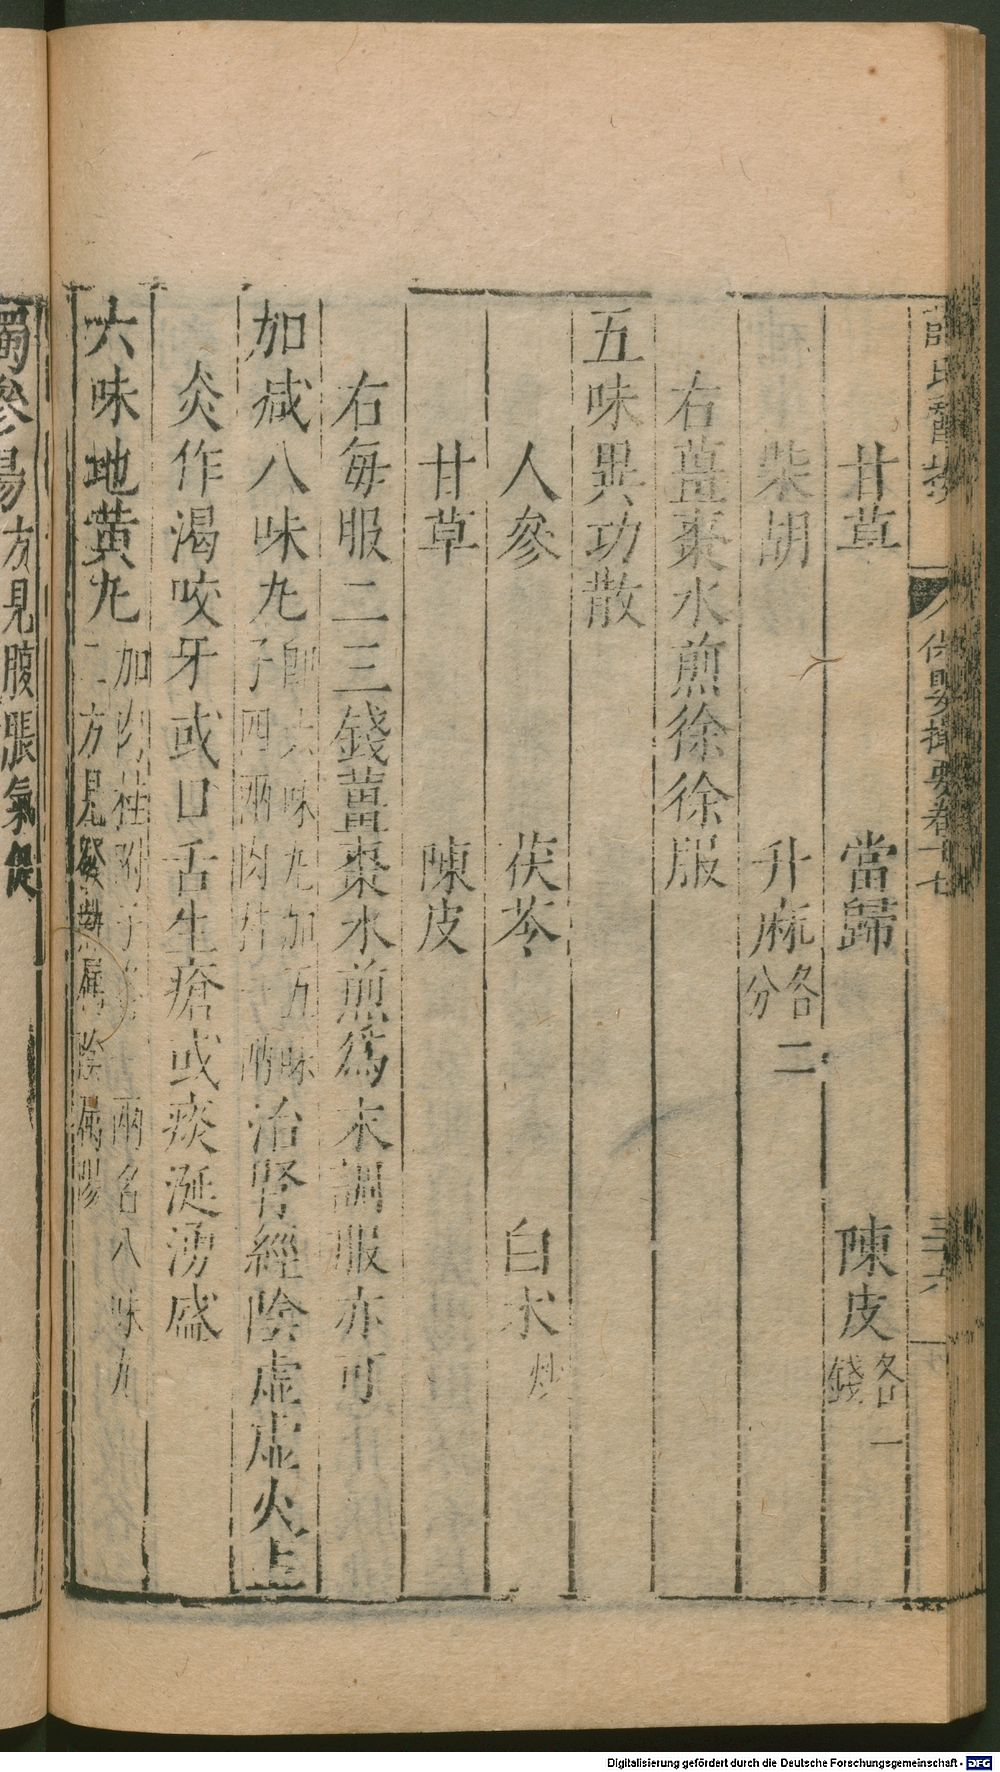 薛氏醫按 保嬰撮要卷十七 三六
甘草 當歸 陳皮各一錢
柴胡 升麻各二分
右薑棗水煎徐徐服
五味異功散
人參 茯苓 白朮炒
甘草 陳皮
右每服二三錢薑棗水煎為末調服亦可
加減八味丸即六味丸加五味子四兩肉桂一兩治腎經陰虛虛火上
炎作渴咬牙或口舌生瘡或痰涎湧盛
六味地黃丸加肉桂附子各 兩名八味丸二方見發熱屬陰屬陽
獨參湯方見腹脹氣促
Digitalisierung gefördert durch die Deutsche Forschungsgemeinschaft - DFG